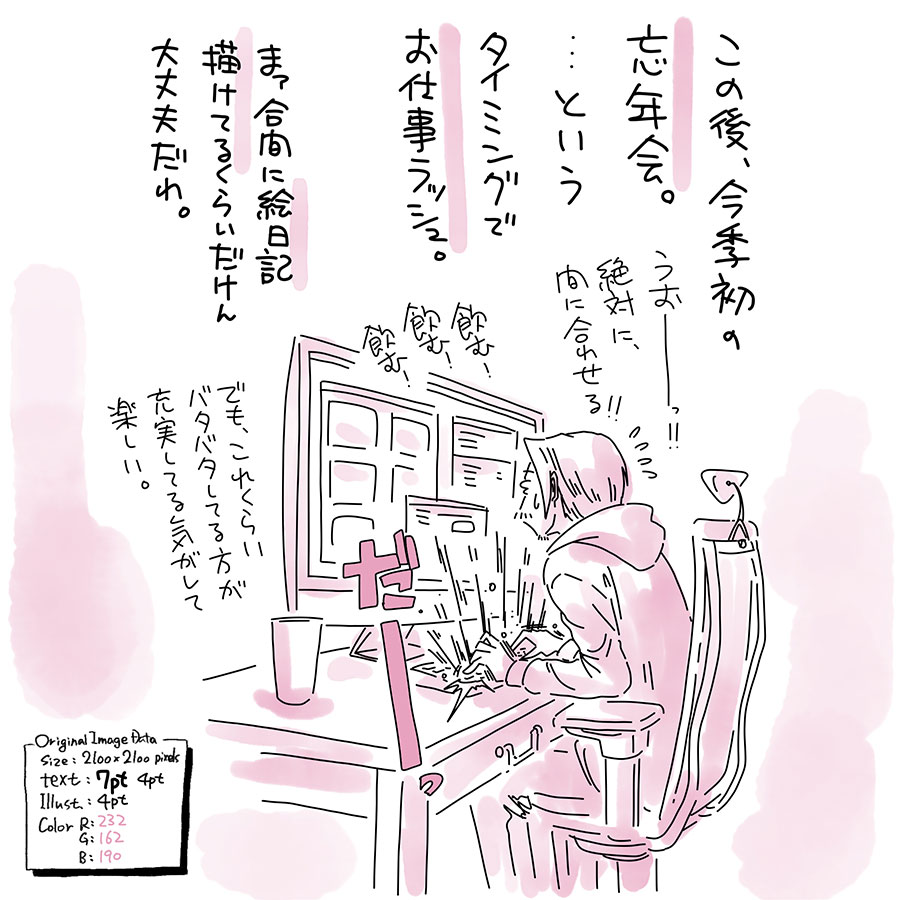 この後、今季初の
忘年会。
…という
タイミングで
お仕事ラッシュ。
まァ合間に絵日記
描けてるくらいだけん
大丈夫だわ。
うおーーっ!!
絶対に、
間に合わせる!!
飲む!
飲む!
飲む!
でも、これくらい
バタバタしてる方が
充実してる気がして
楽しい。
だーっ
Original Image Data
Size : 2100×2100 pixels
text : 7pt 4pt
Illust. : 4pt
Color R: 232
G: 162
B: 190